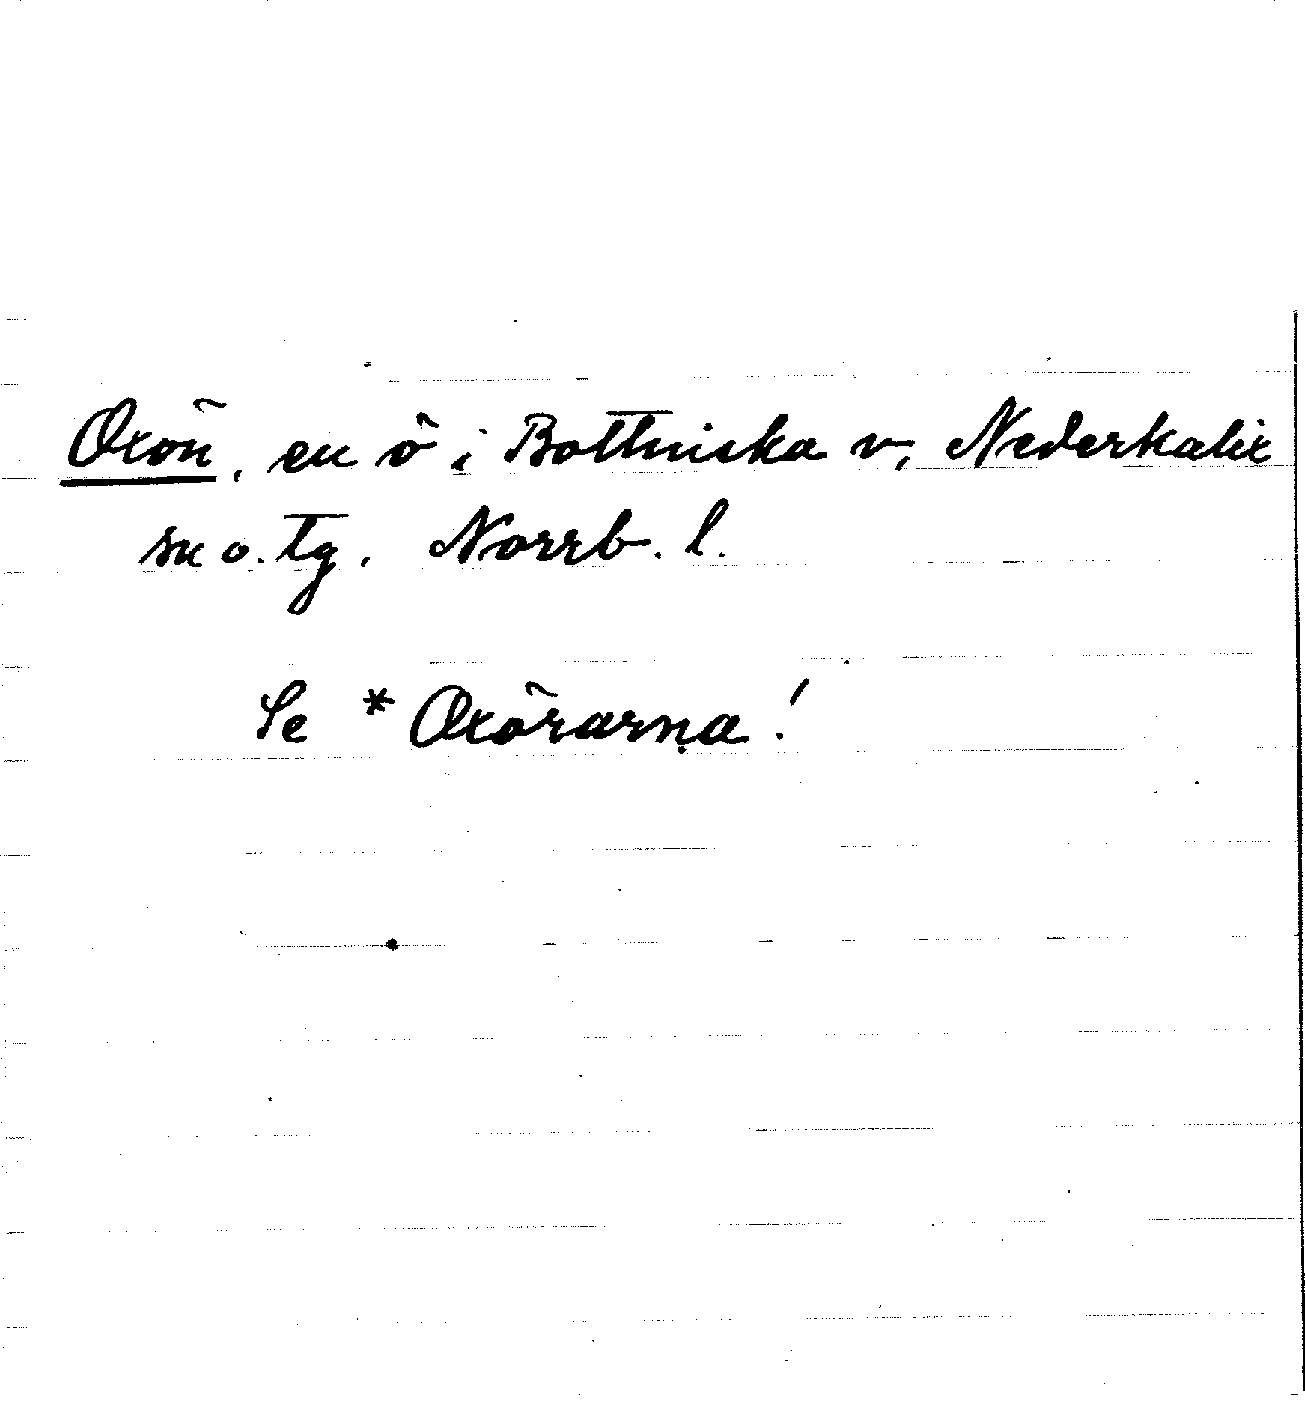 Oxön, en ö i Bottniska v, Nederkalix
sn o. tg. Norrb. l.
Se *Oxörarna!